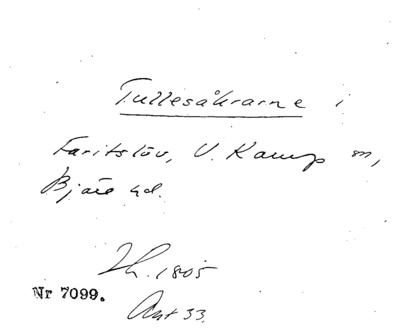 Tullesåkrarne i
Faritslöv, V. Karup sn,
Bjäre hd.
Lh. 1805
Nr 7099.
Ant 33.